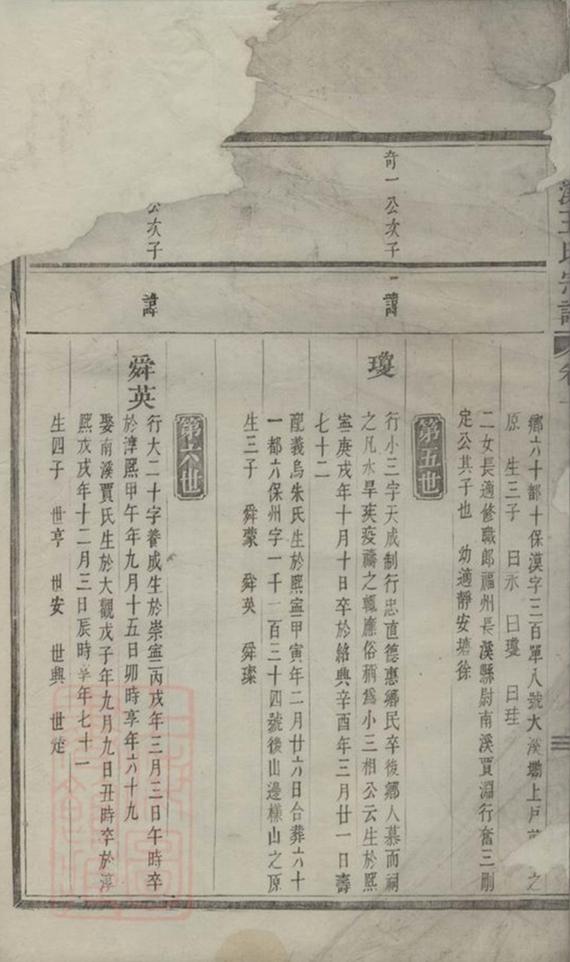 溪王氏宗譜
卷
鄉六十都十保漠字三百單八號大溪壩上戶 之
原 生三子 曰永 曰瓊 曰珪
二女長適修職郎福州長溪縣尉南溪賈淵行奮三剛
定公其子也 幼適靜安塘徐
第五世
奇一公次子 諱
瓊
行小三字天成制行忠直德惠鄉民卒後鄉人慕而祠
之凡水旱疾疫禱之輒應俗稱為小三相公云生於熙
寧庚戌年十月十日卒於紹興辛酉年三月廿一日壽
七十二
配義烏朱氏生於熙寧甲寅年二月廿六日合葬六十
一都六保州字一千一百三十四號後山邊樣山之原
生三子 舜蒙 舜英 舜璨
第六世
公次子 諱
舜英
行大二十字養成生於崇寧丙戌年三月三日午時卒
於淳熙甲午年九月十五日卯時享年六十九
娶南溪賈氏生於大觀戊子年九月九日丑時卒於淳
熙戊戌年十二月三日辰時享年七十一
生四子 世亨 世安 世興 世延